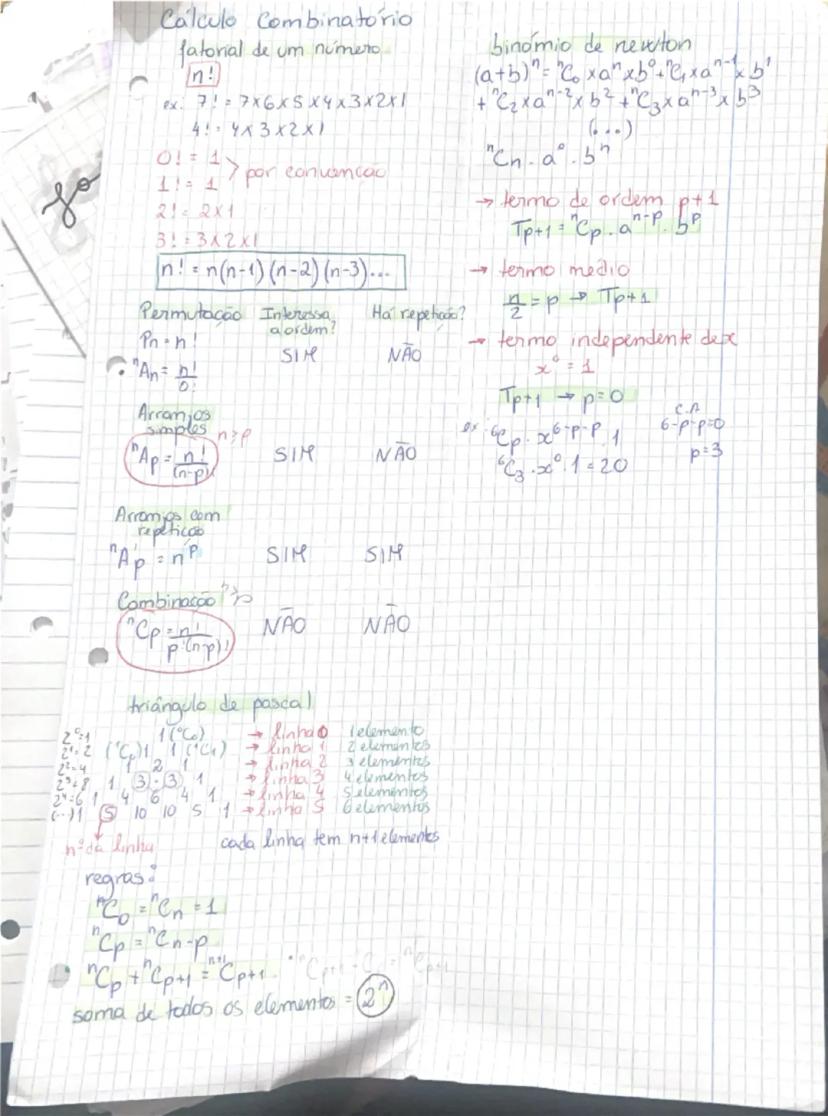 Cálculo Combinatório
fatorial de um número
n!
ex: 7! = 7x6x5x4x3x2x1
4! = 4x3x2x1
0! = 1
1! = 1 > por convenção
2! = 2x1
3! = 3x2x1
n! = n(n-1)(n-2)(n-3)...
Permutação Interessa a ordem? Há repetição?
Pn = n! SIM NÃO
ⁿAn = n!/0!
Arranjos
simples n≥p
ⁿAp = n!/(n-p)! SIM NÃO
Arranjos com
repetição
ⁿA'p = nᵖ SIM SIM
Combinação
ⁿCp = n!/p!(n-p)! NÃO NÃO
triângulo de pascal
2⁰=1 1 (⁰C₀) → linha 0 1 elemento
2¹=2 (¹C₀) 1 1 (¹C₁) → linha 1 2 elementos
2²=4 1 2 1 → linha 2 3 elementos
2³=8 1 3 3 1 → linha 3 4 elementos
1 4 6 4 1 → linha 4 5 elementos
(...) 1 5 10 10 5 1 → linha 5 6 elementos
nº da linha cada linha tem n+1 elementos
regras:
ⁿC₀ = ⁿCn = 1
ⁿCp = ⁿCn-p
ⁿCp + ⁿCp+1 = ⁿ⁺¹Cp+1
soma de todos os elementos = 2ⁿ
binómio de newton
(a+b)ⁿ = ⁿC₀ x aⁿ x b⁰ + ⁿC₁ x aⁿ⁻¹ x b¹
+ ⁿC₂ x aⁿ⁻² x b² + ⁿC₃ x aⁿ⁻³ x b³
(...)
ⁿCn . a⁰ . bⁿ
→ termo de ordem p+1
Tp+1 = ⁿCp . aⁿ⁻ᵖ . bᵖ
→ termo médio
n/2 = p → Tp+1
→ termo independente de x
x⁰ = 1
Tp+1 → p=0
ex: ⁶Cp . x⁶⁻ᵖ⁻ᵖ . 1
⁶C₃ . x⁰ . 1 = 20
C.A
6-p-p=0
p=3